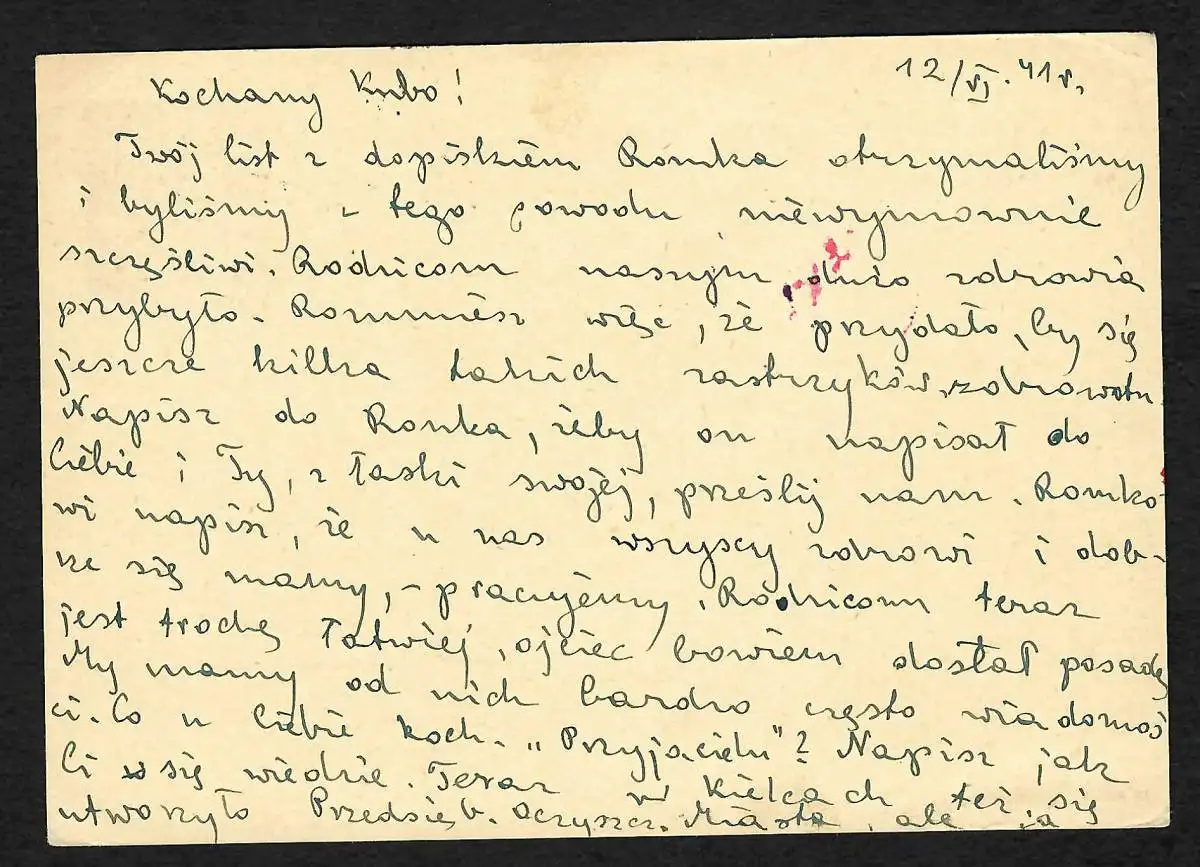 12/VI. 41 r.
Kochany Kubo!
Twój list z dopiskiem Romka otrzymaliśmy
i byliśmy z tego powodu niewymownie
szczęśliwi. Rodzicom naszym dużo zdrowia
przybyło. Rozumiesz więc, że przydało by się
jeszcze kilka takich zastrzyków zdrowotn.
Napisz do Romka, żeby on napisał do
Ciebie i Ty, z łaski swojej, prześlij nam. Romko-
wi napisz, że u nas wszyscy zdrowi i dob-
rze się mamy, - pracujemy. Rodzicom teraz
jest trochę łatwiej, ojciec bowiem dostał posadę
My mamy od nich bardzo często wiadomoś
ci. Co u Ciebie koch. „Przyjacielu"? Napisz jak
Ci się wiedzie. Teraz w Kielcach też się
utworzyło Przedsięb. Oczyszcz. Miasta, ale ja